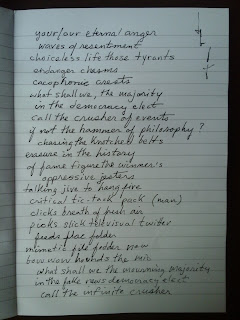 your/our eternal anger
waves of resentment
choiceless life those tyrants
endanger chasms
cacophonic crests
what shall we, the majority
in the democracy elect
call the crusher of events
if not the hammer of philosophy?
chasing the knotched belts
erasure in the history
of fame figure the winner's
oppressive jesters
talking jive to hang five
critical tic-tack pack (man)
clicks breath of fresh air
picks slick televisual twitter
feeds flac folder
mimetic file fodder now
bow wow hounds the mix
what shall we the mourning majority
in the fake news democracy elect
call the infinite crusher